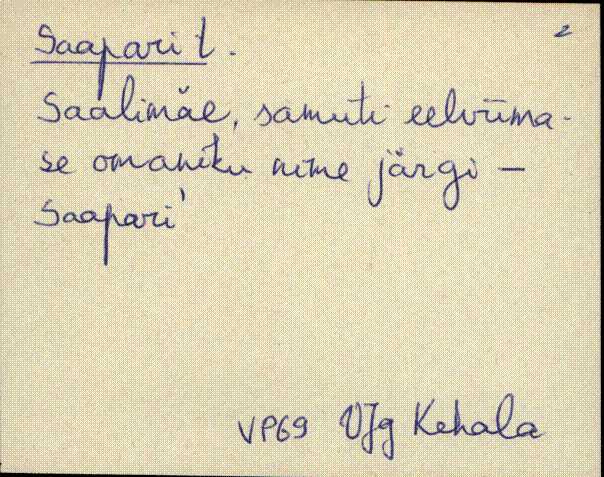 2
Saapari t.
Saalimäe, samuti eelviima-
se omaniku nime järgi –
Saapari'
VP69 VJg Kehala